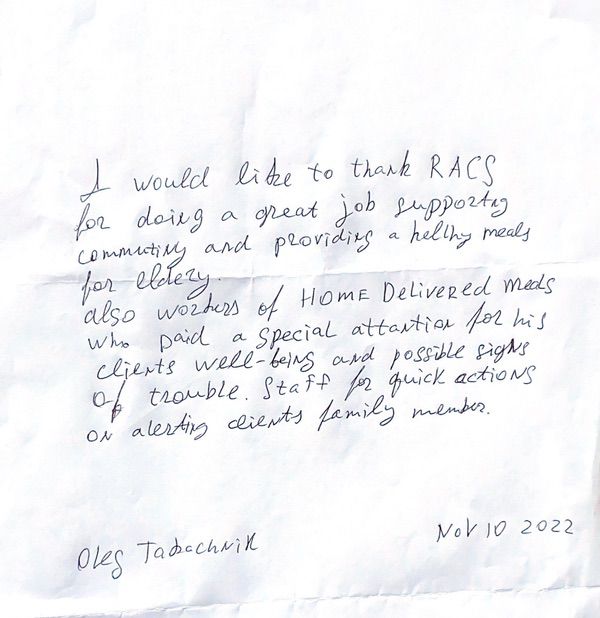 I would like to thank RACS
for doing a great job supportig
commutity and providing a hellhy meals
for elderly.
also workers of HOME Delivered meals
who paid a special attantion for his
clients well-being and possible signs
of trouble. Staff for quick actions
on alerting clients family member.
Oleg Tabachnik
Nov 10 2022